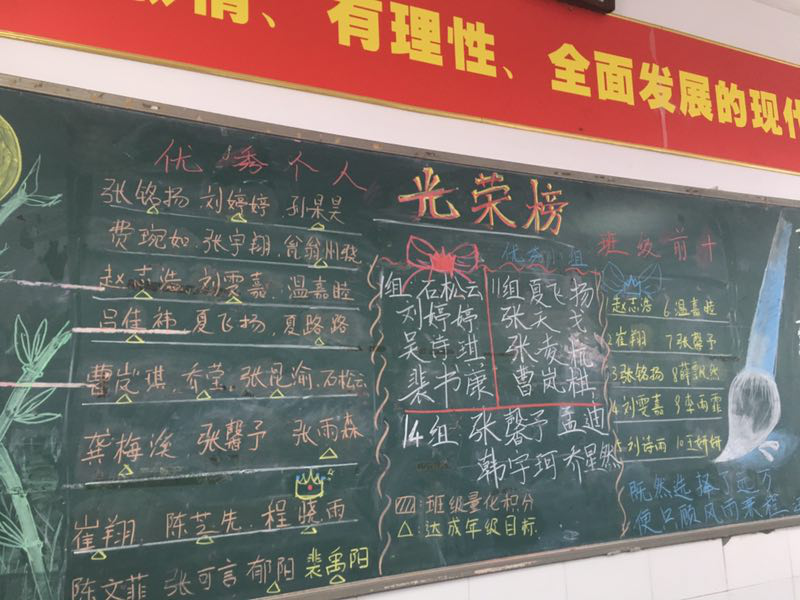 情、有理性、全面发展的现代
优秀个人
张铭扬 刘婷婷 孙果昊
费琬如、张宇翔、翁州晓
赵志浩、刘雯嘉、温嘉睦
吕佳祎、夏飞扬、夏路路
曹岚琪、乔莹、张昆渝、石松云
龚梅溪 张馨予 张雨森
崔翔、陈芝先、程晓雨
陈文菲 张可言 郁阳 裴禹阳
光荣榜
优秀小组
1组:石松云
刘婷婷
吴诗琪
裴书康
11组 夏飞扬
张天戈
张凌航
曹岚棋
14组 张馨予 孟迪
韩宇珂 乔星然
▨:班级量化积分
△:达成年级目标
班级前十
1赵志浩 6温嘉睦
2崔翔 7张馨予
3张铭扬 8薛飘然
4刘雯嘉 9李雨霏
5刘诗雨 10王妍妍
既然选择了远方
便只顾风雨兼程